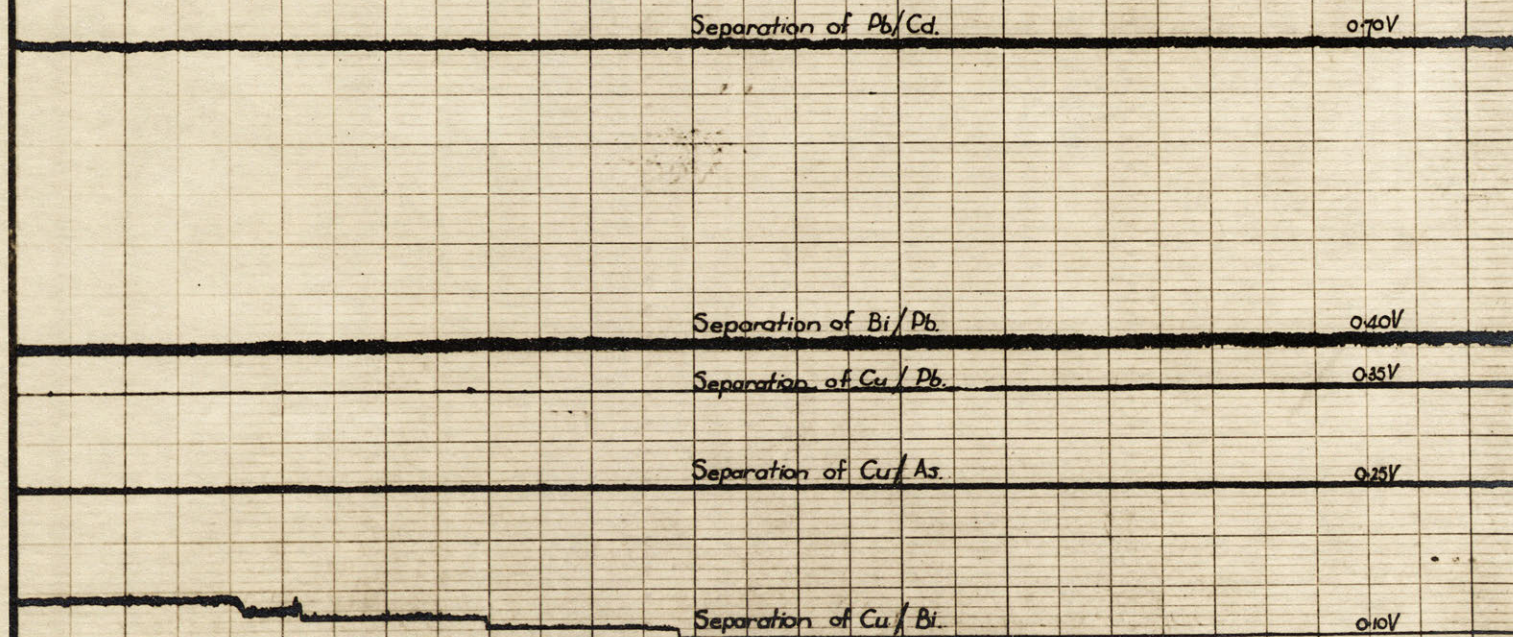 Separation of Pb/Cd. 0.70V
Separation of Bi/Pb. 0.40V
Separation of Cu/Pb. 0.35V
Separation of Cu/As. 0.25V
Separation of Cu/Bi. 0.10V